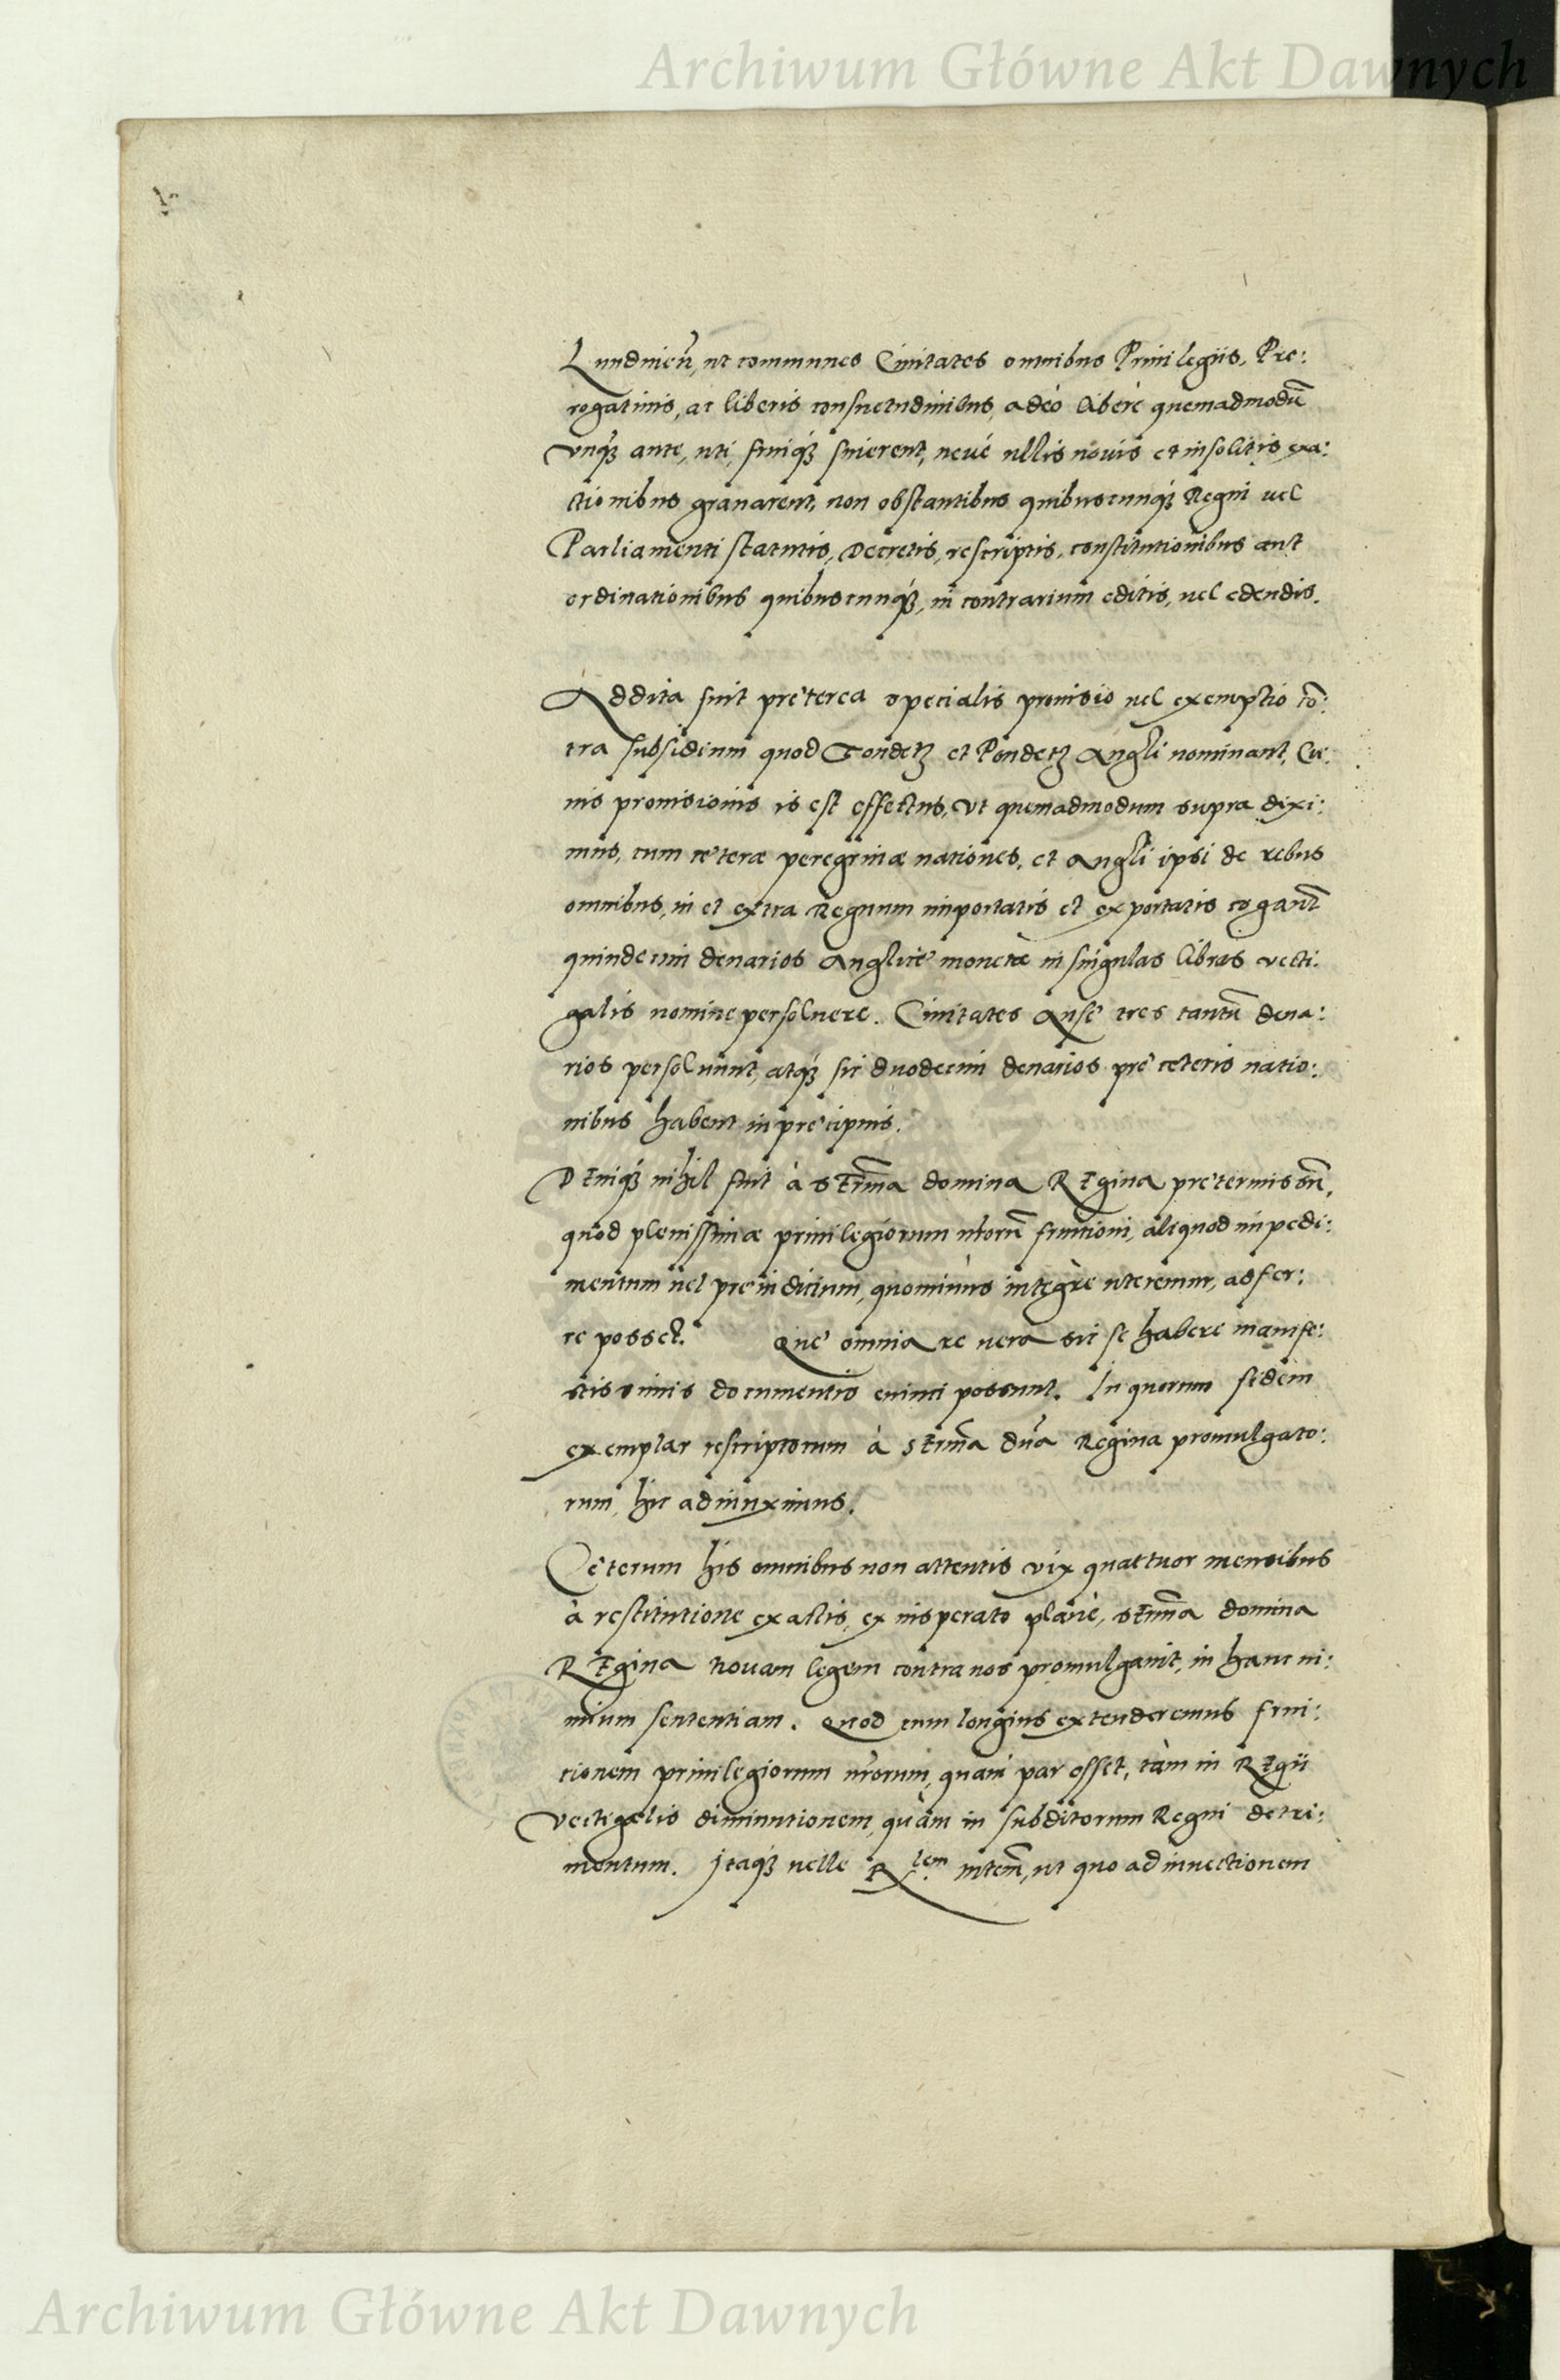 Archiwum Główne Akt Dawnych
Lundineñ, ut communes Ciuitates omnibus Priuilegiis, Pre:
rogatiuis, ac liberis consuetudinibus, adeò liberè quemadmodũ
vnq́ꝫ ante, uti, fruiq́ꝫ siuerent, neué ullis nouis et insolitis exa:
ctionibus grauarent, non obstantibus quibuscunq́ꝫ Regni uel
Parliamenti statutis, Decretis, rescriptis, constitutionibus aut
ordinationibus quibuscunq́ꝫ, in contrarium editis, uel edendis.
Addita fuit pręterea specialis prouisio uel exemptio cõ:
tra subsidium quod Tondetz et Pondetz Angli nominant, Cu:
uis prouisionis is est effectus, vt quemadmodum supra dixi:
mus, cum cęteræ peregrinæ nationes, et Angli ipsi de rebus
omnibus, in et extra Regnum importatis et exportatis cogant̃
quindecim denarios Anglicę monetæ in singulas libras vecti:
galis nomine persoluere. Ciuitates Ansę tres tantũ dena:
rios persoluunt, atq́ꝫ sic duodecim denarios prę ceteris natio:
nibus habent in pręcipuis.
DEniq́ꝫ nihil fuit à sErm̃a domina REgina prętermissũ,
quod plenissimæ priuilegiorum nr̃orũ fruitioni, aliquod impedi:
mentum uel pręiudicium, quominùs integrè uteremur, adfer:
re posset. Quę omnia re uera sic se habere manife:
stissimis documentis euinci possunt. In quorum fidem
exemplar rescriptorum à sErm̃a dña Regina promulgato:
rum, hic adiunximus.
Cęterum his omnibus non attentis vix quattuor mensibus
à restitutione exactis, ex insperato planè, sErm̃a domina
REgina nouam legem contra nos promulgauit, in hanc ni:
mium sententiam. Quod cum longius extenderemus frui:
tionem priuilegiorum nr̃orum, quam par esset, tàm in REgii
vectigalis diminutionem, quàm in subditorum Regni detri:
mentum. Itaq́ꝫ uelle R lem. intem̃, ut quo ad inuectionem
Archiwum Główne Akt Dawnych